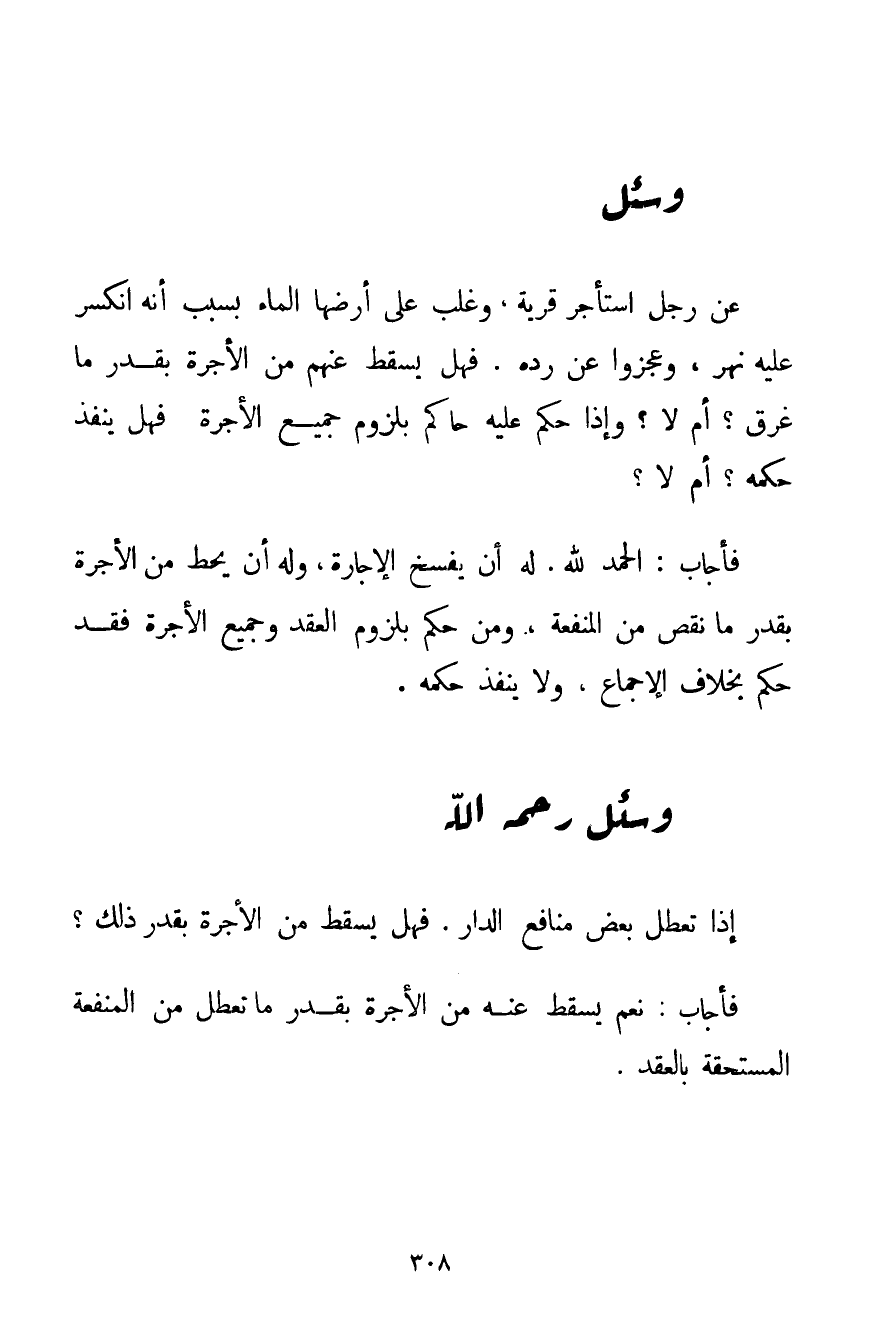 وسئل
عن رجل استأجر قرية، وغلب على أرضها الماء بسبب أنه انكسر
عليه نهر ، وعجزوا عن رده . فهل يسقط عنهم من الأجرة بقدر ما
غرق ؟ أم لا ؟ وإذا حكم عليه حاكم بلزوم جميع الأجرة فهل ينفذ
حكمه ؟ أم لا ؟
فأجاب : الحمد لله . له أن يفسخ الإجارة، وله أن يحط من الأجرة
بقدر ما نقص من المنفعة ، ومن حكم بلزوم العقد وجميع الأجرة فقد
حكم بخلاف الإجماع ، ولا ينفذ حكمه .
وسئل رحمه الله
إذا تعطل بعض منافع الدار . فهل يسقط من الأجرة بقدر ذلك ؟
فأجاب : نعم يسقط عنه من الأجرة بقدر ما تعطل من المنفعة
المستحقة بالعقد .
٣٠٨